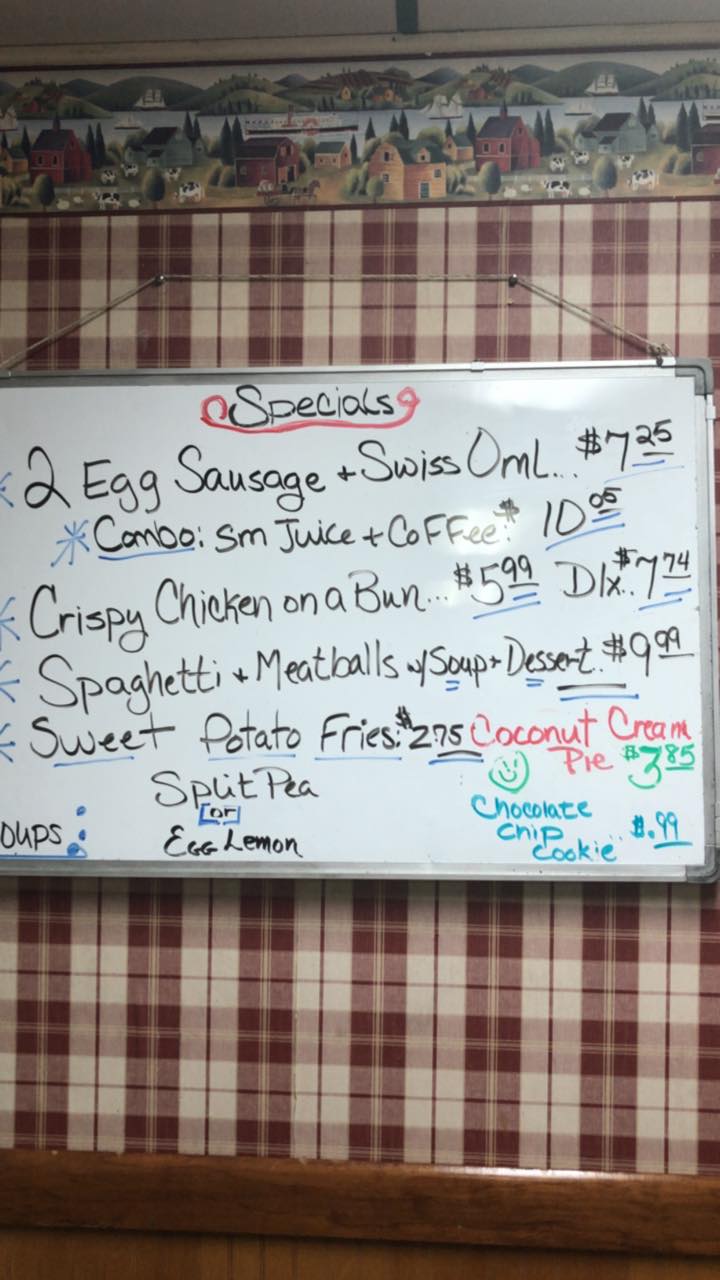 Specials
2 Egg Sausage + Swiss Oml... $7.25
Combo: Sm Juice + Coffee: $10.05
Crispy Chicken on a Bun... $5.99 Dlx.. $7.74
Spaghetti + Meatballs w/Soup + Dessert.. $9.99
Sweet Potato Fries: $2.75
Coconut Cream
Pie $3.85
Split Pea
or
Egg Lemon
oups:
Chocolate
Chip
Cookie .. $.99